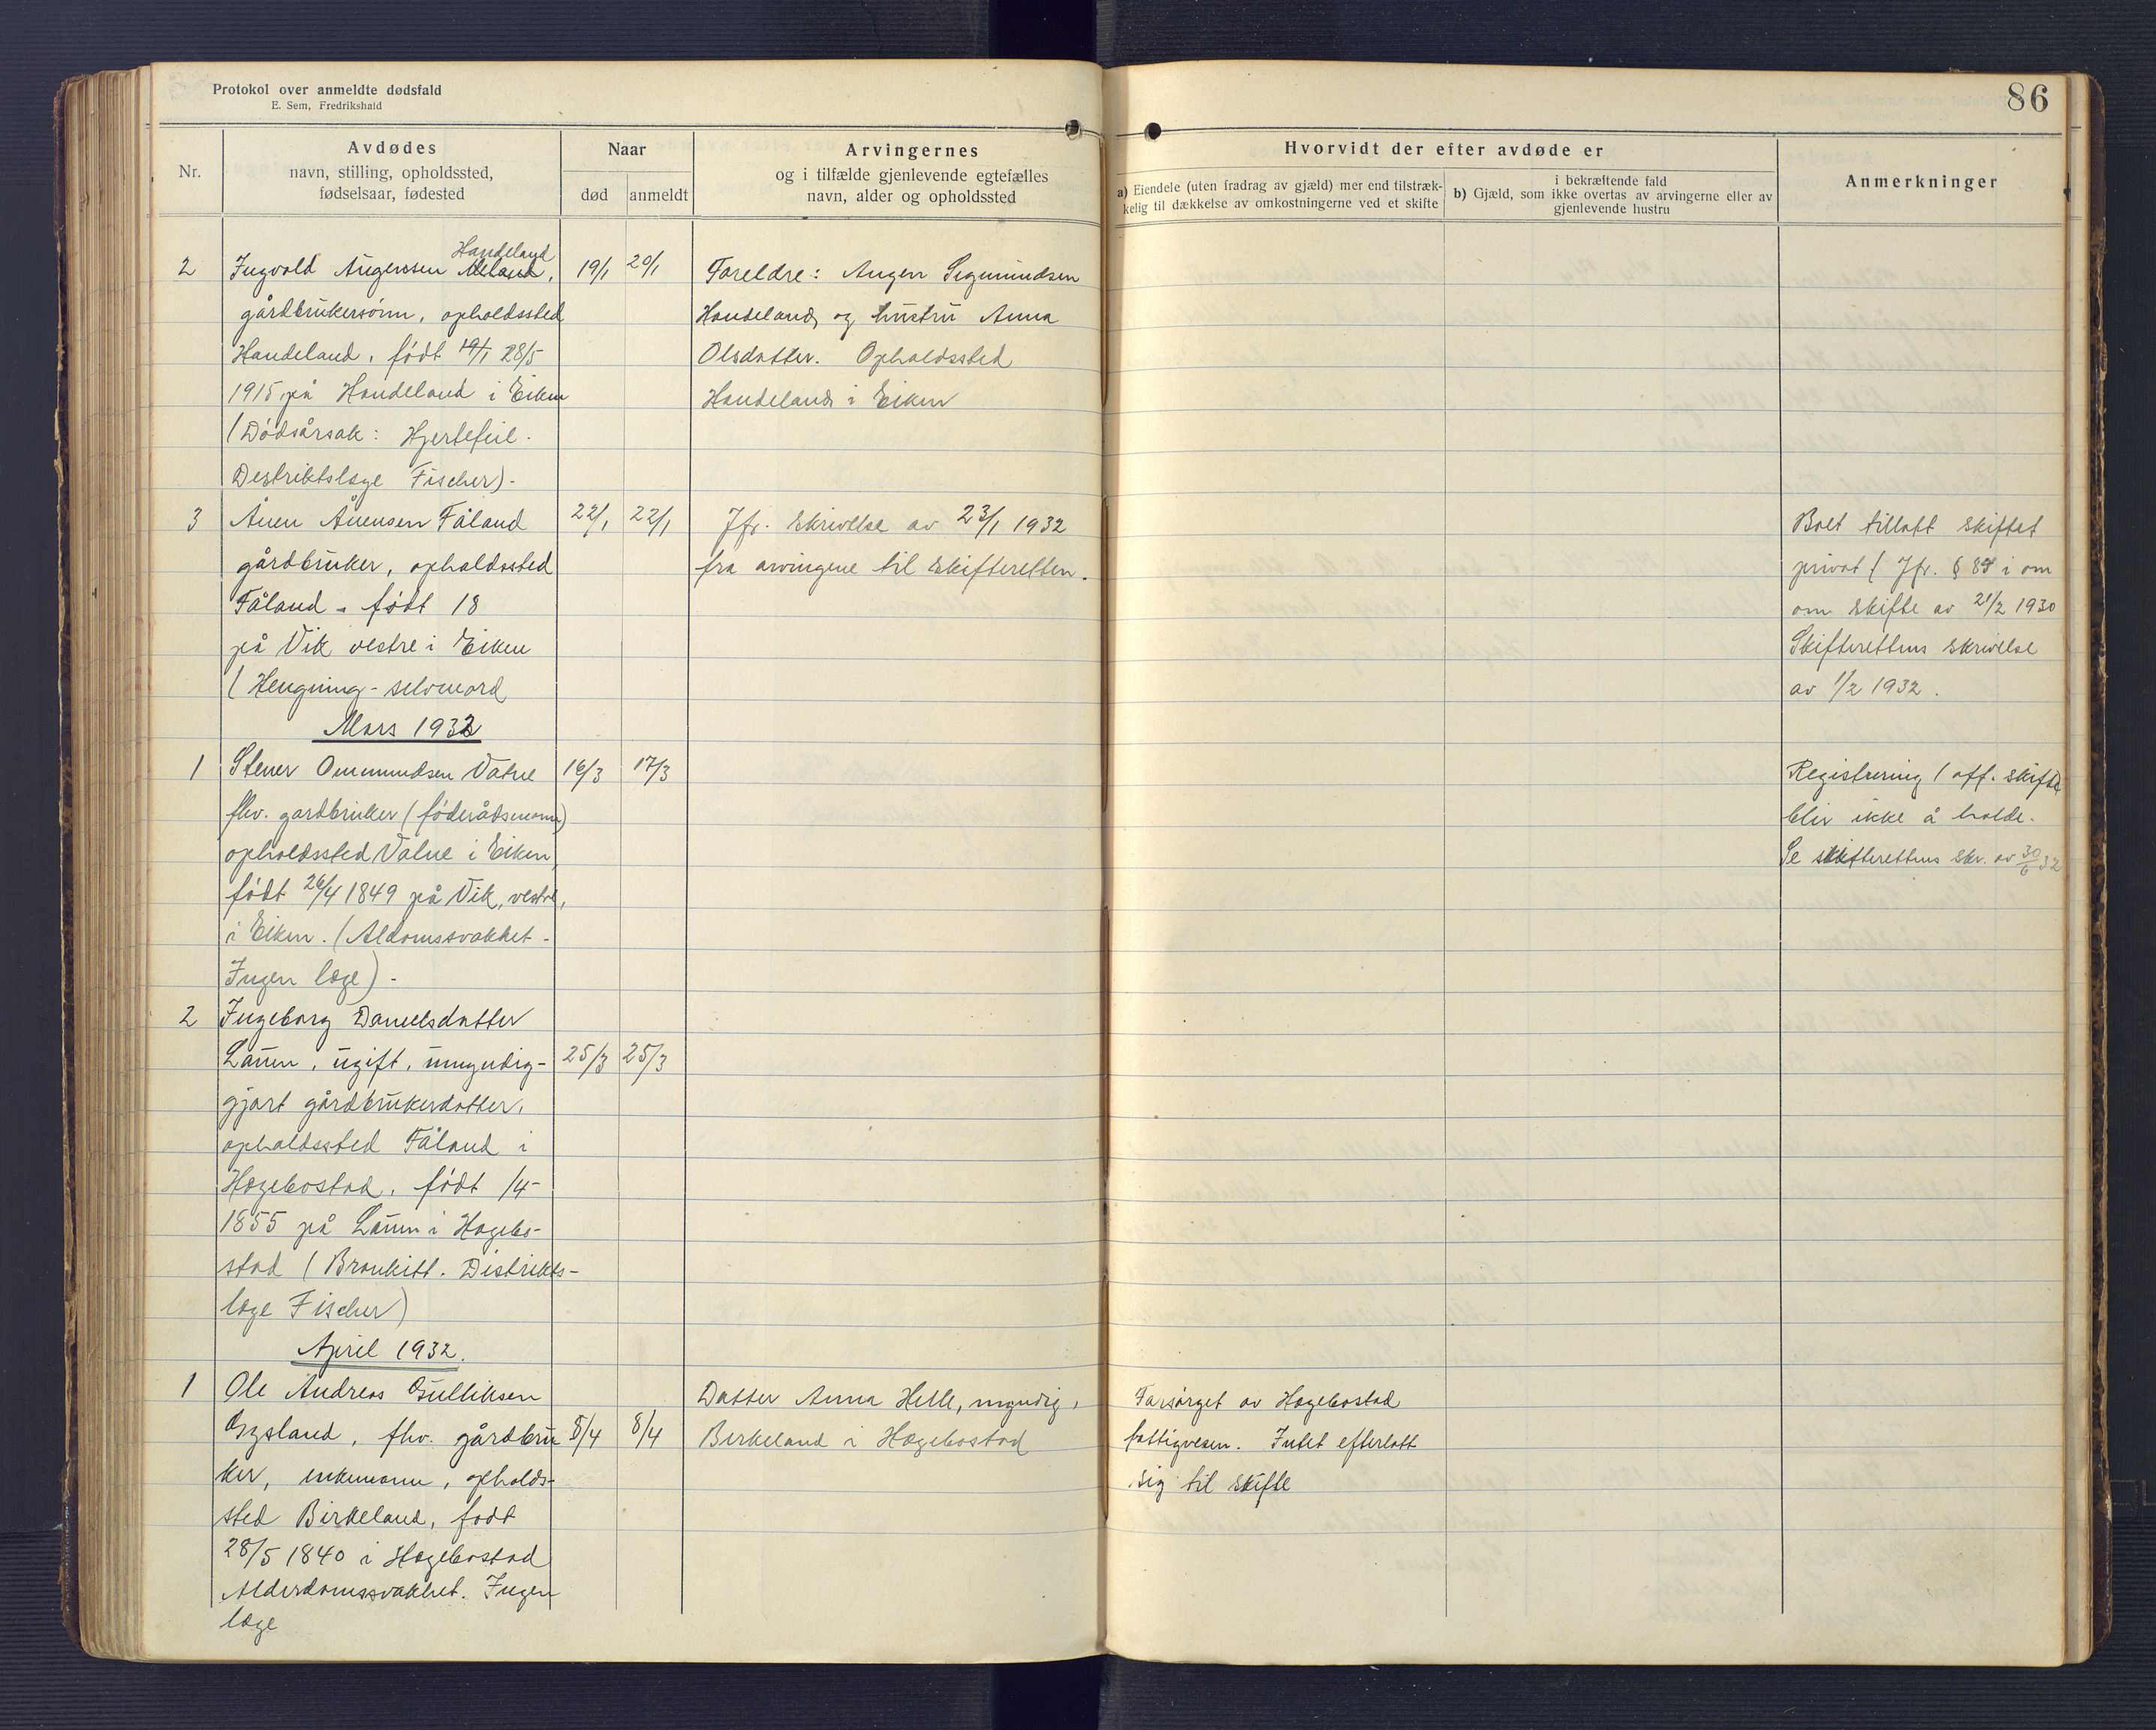 Protokol over anmeldte dødsfald
E. Sem, Fredrikshald
86
Nr.
Avdødes
navn, stilling, opholdssted,
fødselsaar, fødested
Naar
død
anmeldt
Arvingernes
og i tilfælde gjenlevende egtefælles
navn, alder og opholdssted
Hvorvidt der efter avdøde er
a) Eiendele (uten fradrag av gjæld) mer end tilstræk-
kelig til dækkelse av omkostningerne ved et skifte
i bekræftende fald
b) Gjæld, som ikke overtas av arvingerne eller av
gjenlevende hustru
Anmerkninger
Handeland
2 Ingvald Augensen 19/1 20/1
gårdbrukersønn, opholdssted
Handeland, født 19/1 28/5
1915 på Handeland i Eiken
(Dødsårsak: Hjertefeil.
Destriktslæge Fischer)-
Foreldre: Augen Segmundsen
Handeland og hustru Anna
Olsdatter. Opholdssted
Handeland i Eiken
3 Åuen Åuensen Fåland 22/1 22/1
gårdbruker, opholdssted
Fåland - født 18
på Vik vestre i Eiken
(Hengning - selvmord
Jfr. skrivelse av 23/1 1932
fra arvingene til skifteretten.
Boet tillatt skiftet
privat (Jfr. § 84 i om
om skifte av 21/2 1930
Skifterettens skrivelse
av 1/2 1932.
Mars 1932
1 Stener Ommundsen Vatne 16/3 17/3
fhv. gardbruker (føderådsmann)
opholdssted Vatne i Eiken,
født 26/4 1849 på Vik, vestre,
i Eiken. (Aldomssvakhet -
Ingen læge) -
Registrering / off. skifte
blir ikke å holde.
Se skifterettens skr. av 30/6 32
2 Ingeborg Danielsdatter
Lauen, ugift, umyndig- 25/3 25/3
gjort gårdbrukerdatter,
opholdssted Fåland i
Hægebostad, født /4-
1855 på Lauen i Hægebo-
stad (Bronkitt. Distrikts-
læge Fischer)
April 1932.
1 Ole Andreas Gulliksen
Gysland, fhv. gårdbru 8/4 8/4
ker, enkemann, opholds-
sted Birkeland, født
28/5 1840 i Hægebostad
Alderdomssvakhet. Ingen
læge
Datter Anna Helle, myndig,
Birkeland i Hægebostad
Forsørget av Hægebostad
fattigvesen. Intet efterlatt
sig til skifte